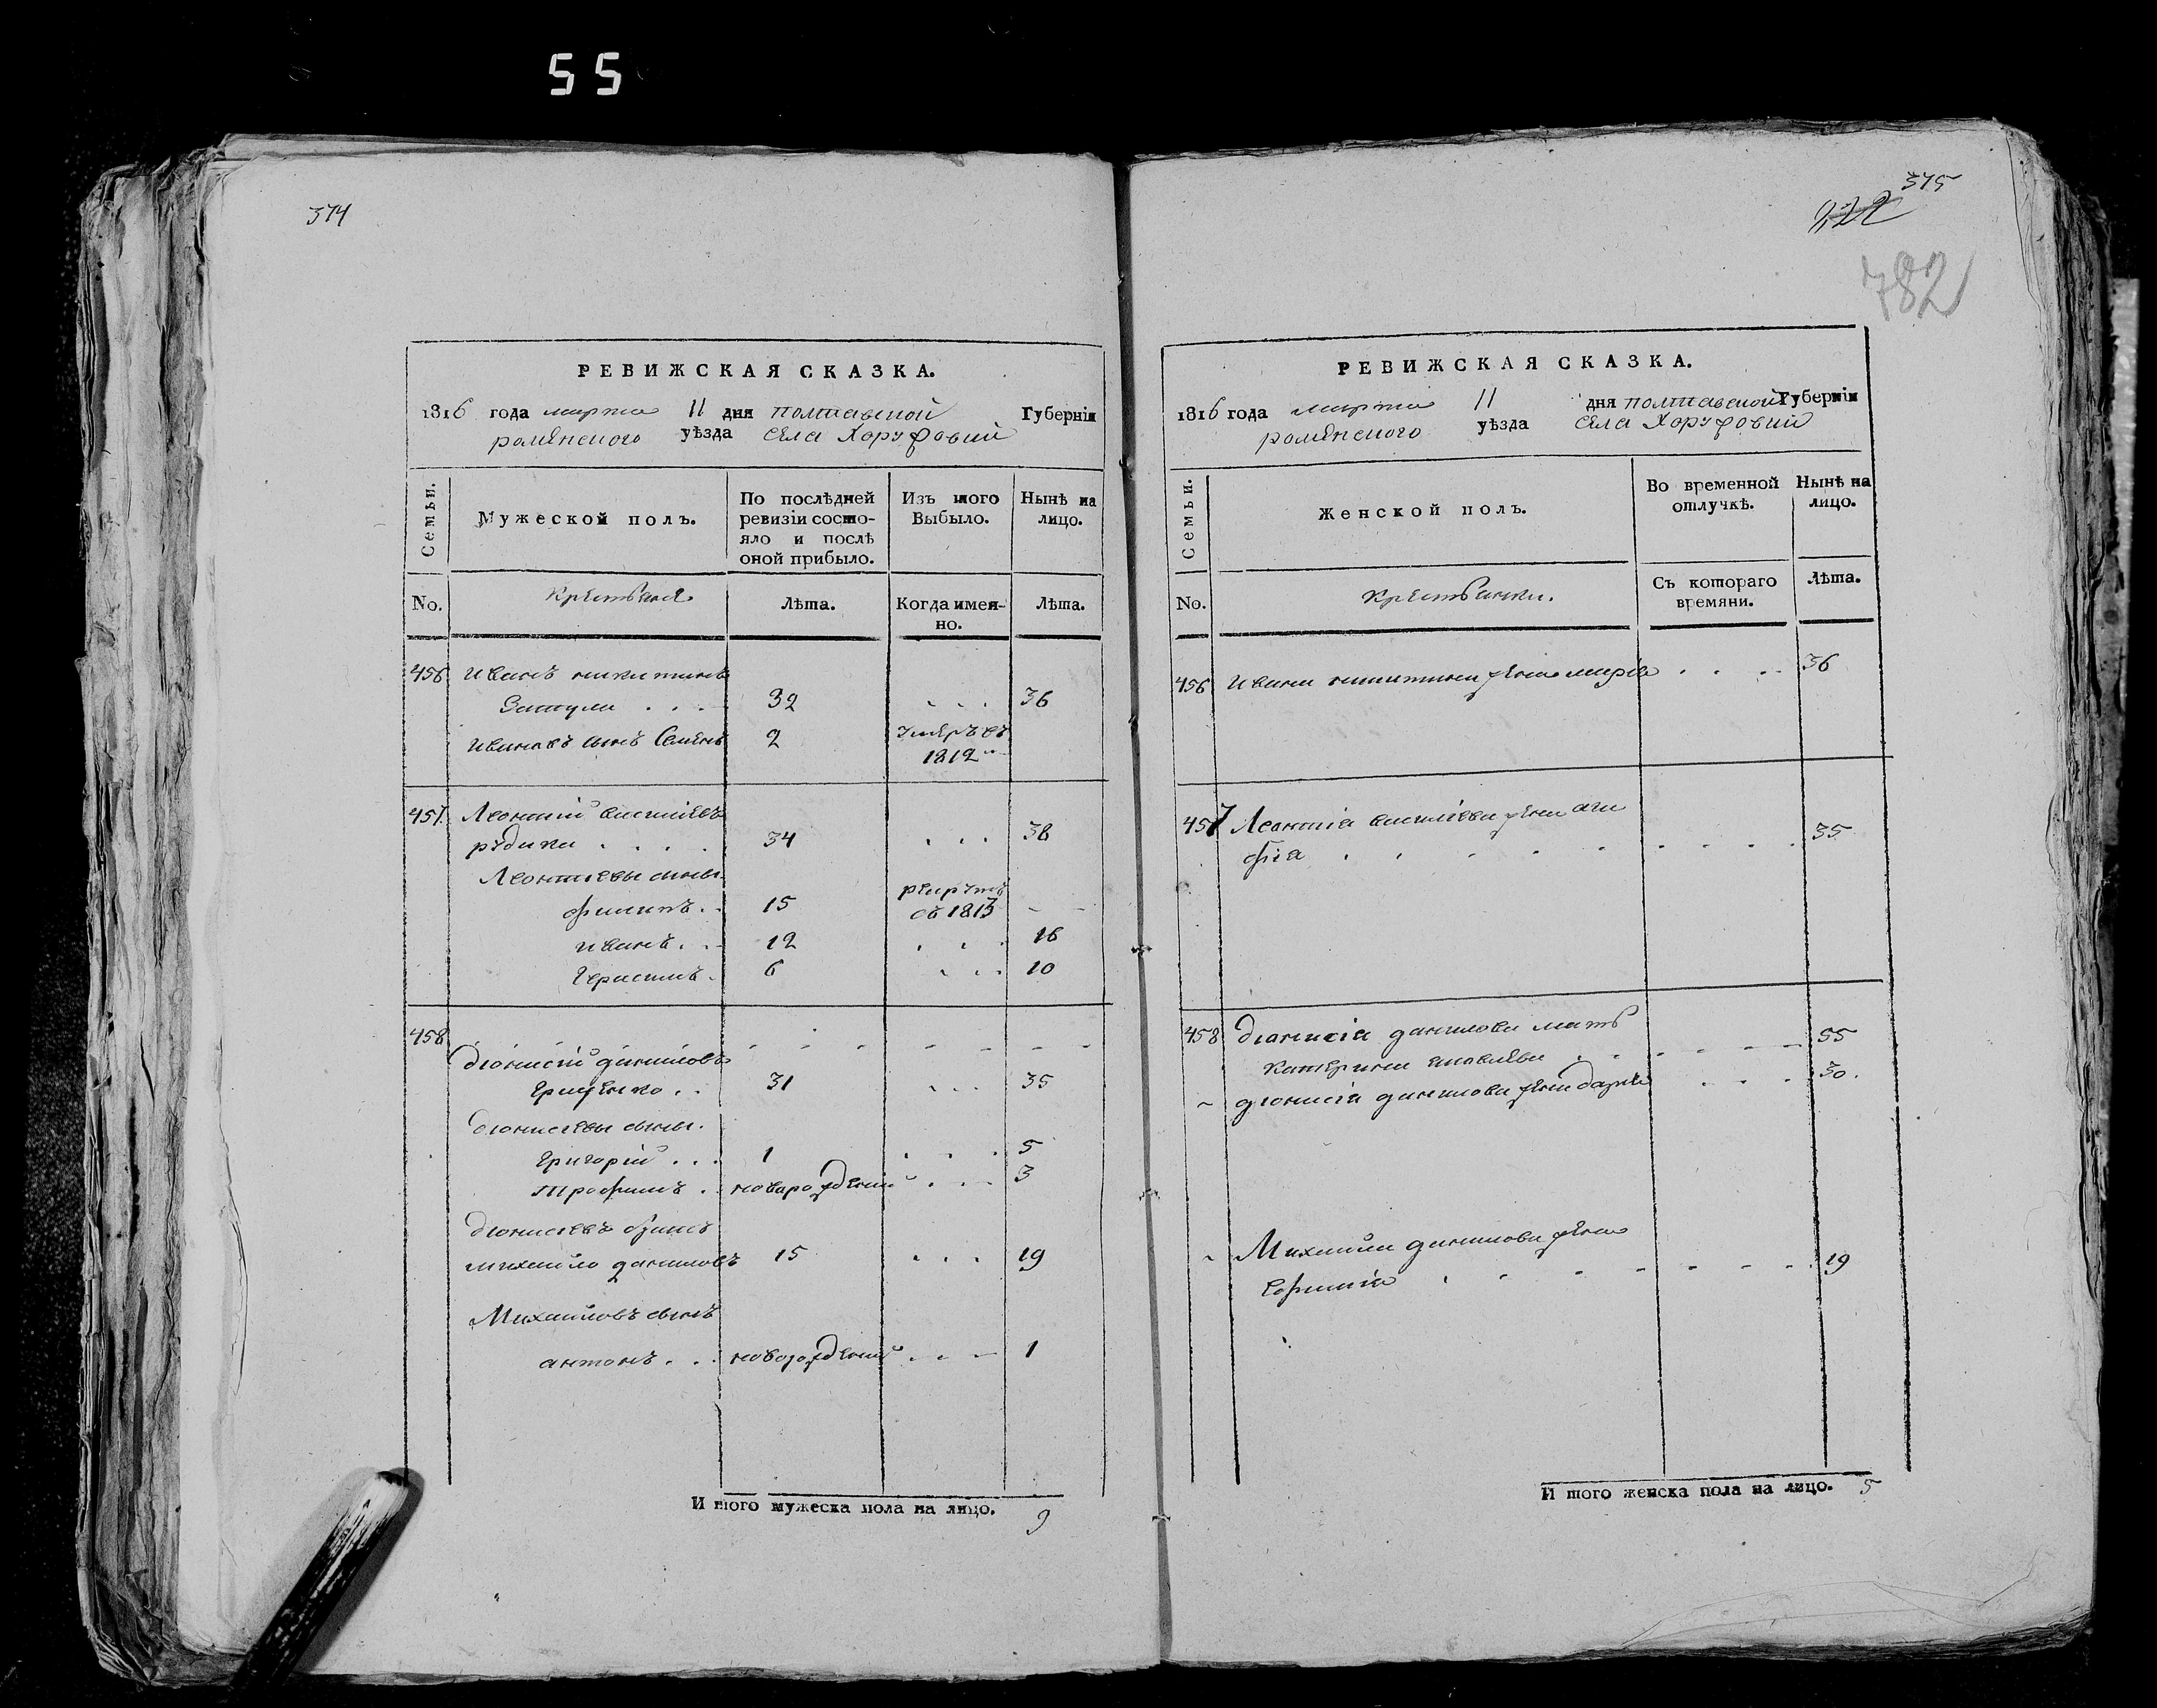 55
374
РЕВИЖСКАЯ СКАЗКА.
1816 года марта 11 дня полтавской Губернiи
роменского уѣзда села Хоружовки
Семьи.
Мужеской полъ.
По послѣдней ревизiи состо-
яло и послѣ
оной прибыло.
Изъ того
Выбыло.
Нынѣ на
лицо.
No.
Крестьяне
Лѣта.
Когда имен-
но.
Лѣта.
456 Иванъ никитинъ
Затула . . . 32 . . . 36
ивановъ сынъ Семенъ 2 умеръ въ
1812
457 Леонтiй василiевъ
редка . . . . 34 . . . 38
Леонтiевы сыны
филипъ . . 15 рекрутъ
въ 1813 - -
иванъ . . 12 . . . 16
Герасимъ . 6 . . . 10
458
дiонисiй даниловъ
Грищенко . . 31 . . . 35
дiонисiевы сыны.
Григорiй . . . 1 . . . 5
трофимъ . . новорожденный . . . 3
дiонисiевъ братъ
михайло даниловъ 15 . . . 19
Михайловъ сынъ
антонъ . . . новорожденный . . . 1
И того мужеска пола на лицо. 9
375
122
782
РЕВИЖСКАЯ СКАЗКА.
1816 года марта 11 дня полтавской Губернiи
роменского уѣзда села Хоружовки
Семьи.
Женской полъ.
Во временной
отлучкѣ.
Нынѣ на
лицо.
No.
Крестьянки.
Съ котораго
времяни.
Лѣта.
456 Ивана никитина жена марiя . . . . 36
457 Леонтiя василiева жена ага
фiя . . . . . . . . . . 35
458 дiонисiя данилова мать
катерина яковлева . . . . . 55
~ дiонисiя данилова жена дарья . . . 30.
~ Михайла данилова жена
. . . . . . . . 19
И того женска пола на лицо. 5